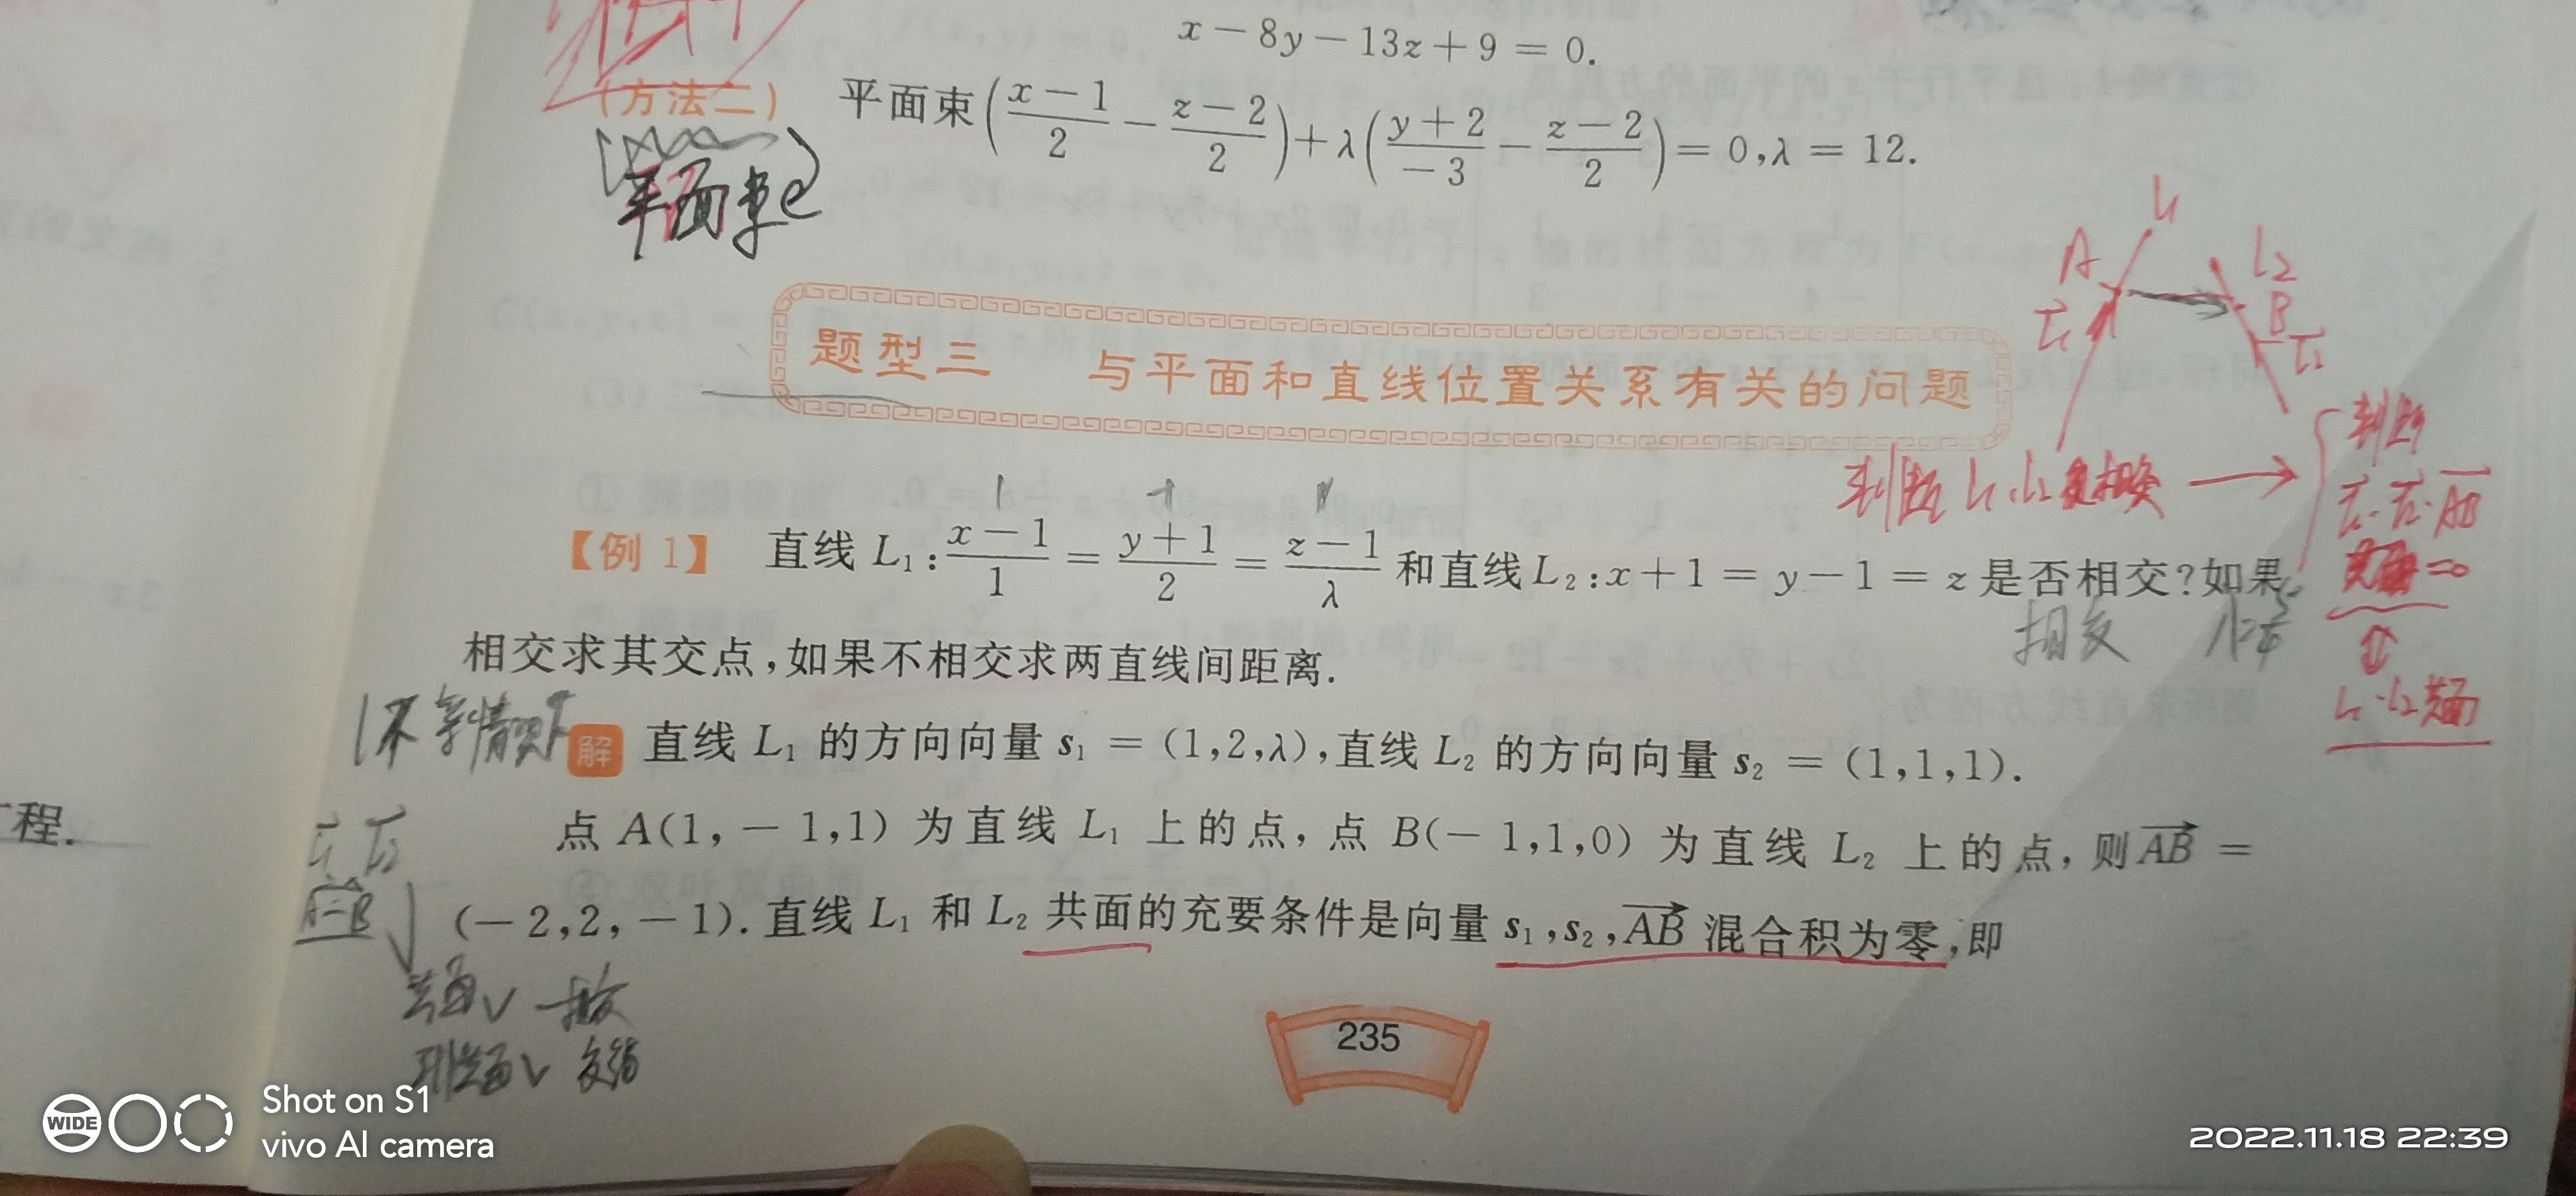 x－8y－13z＋9＝0.
(方法二) 平面束((x－1)/2－(z－2)/2)＋λ((y＋2)/－3－(z－2)/2)＝0,λ＝12.
平面束
L₁
A
L₂
B
题型三 与平面和直线位置关系有关的问题
判断
判断 L₁.L₂是否相交
AB
＝0
【例1】 直线 L₁:(x－1)/1＝(y＋1)/2＝(z－1)/λ 和直线L₂:x＋1＝y－1＝z是否相交?如果
相交
相交求其交点,如果不相交求两直线间距离.
L₁.L₂共面
解 直线 L₁ 的方向向量 s₁＝(1,2,λ),直线 L₂ 的方向向量 s₂＝(1,1,1).
程.
点 A(1,－1,1) 为直线 L₁ 上的点,点 B(－1,1,0) 为直线 L₂ 上的点,则AB＝
(－2,2,－1).直线 L₁ 和 L₂ 共面的充要条件是向量 s₁,s₂,AB 混合积为零,即
235
WIDE
Shot on S1
vivo AI camera
2022.11.18 22:39